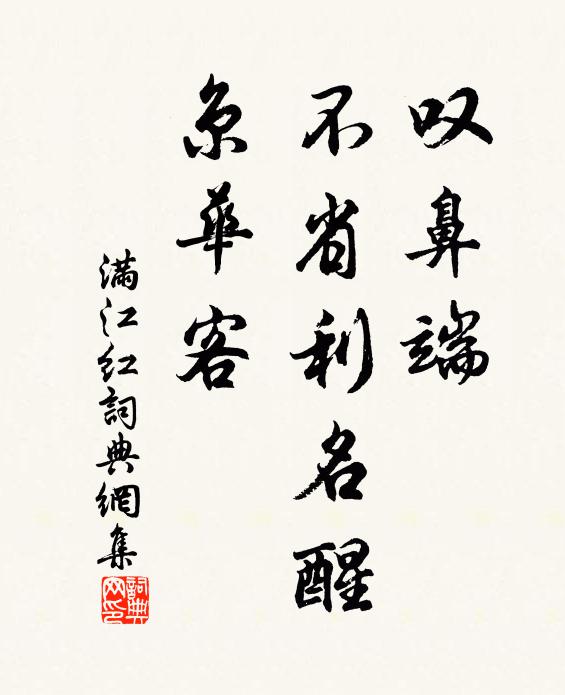 叹鼻端
不省利名醒
京華客
滿江红詞典網集
詞典网印